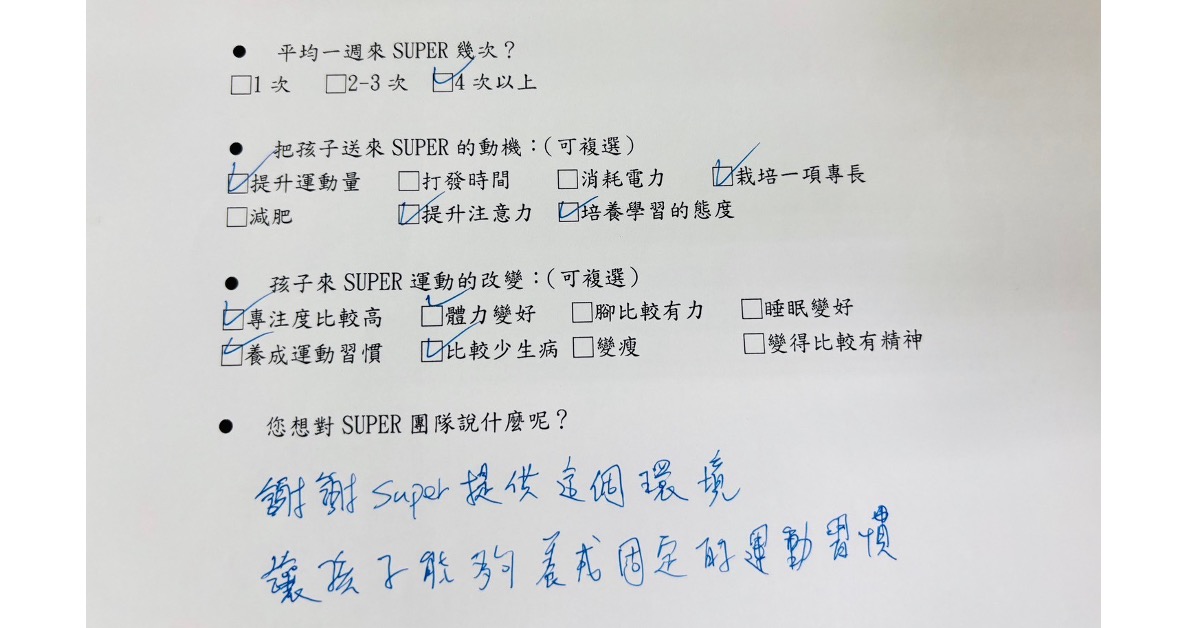 ● 平均一週來 SUPER 幾次？
□1 次 □2-3 次 ☑4 次以上
● 把孩子送來 SUPER 的動機：(可複選)
☑提升運動量 □打發時間 □消耗電力 ☑栽培一項專長
□減肥 ☑提升注意力 ☑培養學習的態度
● 孩子來 SUPER 運動的改變：(可複選)
☑專注度比較高 ☑體力變好 □腳比較有力 □睡眠變好
☑養成運動習慣 ☑比較少生病 □變瘦 □變得比較有精神
● 您想對 SUPER 團隊說什麼呢？
謝謝 Super 提供這個環境
讓孩子能夠養成固定的運動習慣